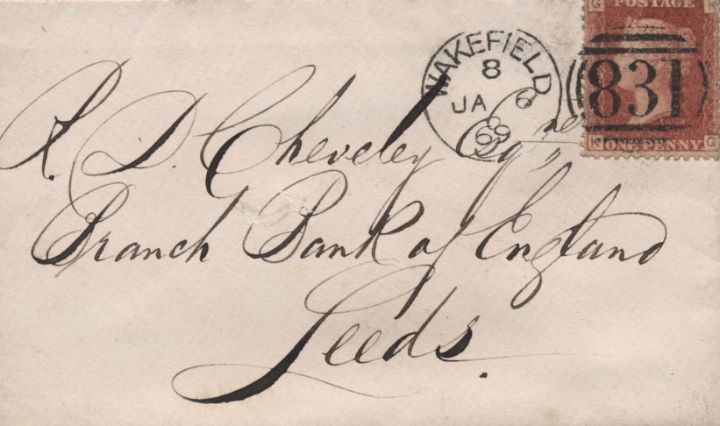 POSTAGE
WAKEFIELD
8
JA 6
69
831
ONE PENNY
K G
R. D. Cheveley Esqre
Branch Bank of England
Leeds.